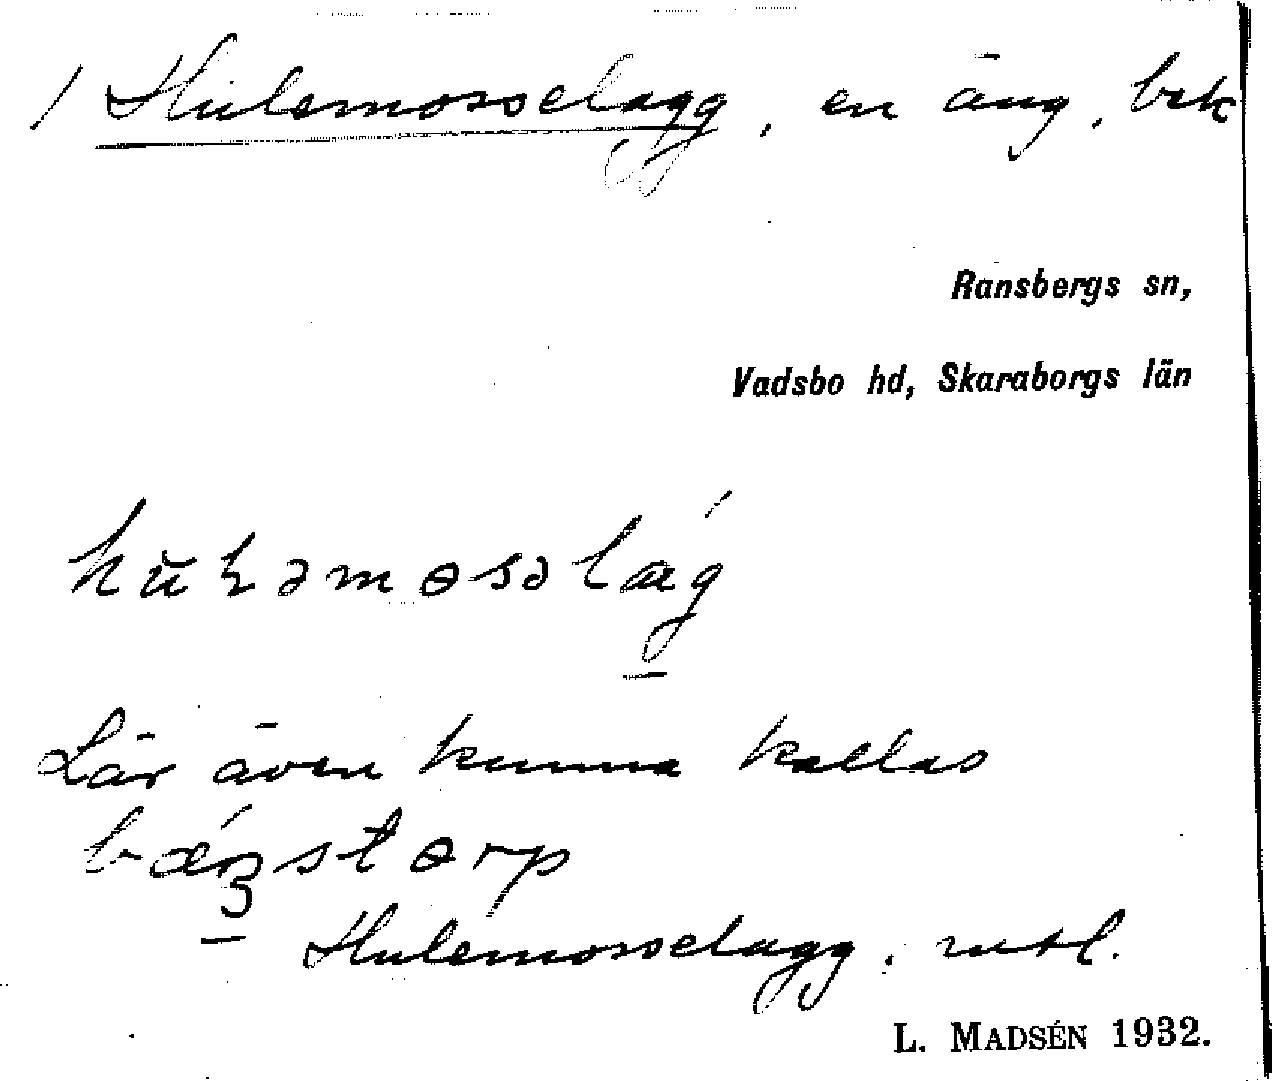 / Hulemosselagg, en äng, bek
Ransbergs sn,
Vadsbo hd, Skaraborgs län
Lär även kunna kallas
Hulemosselagg. uttl.
L. MADSÉN 1932.